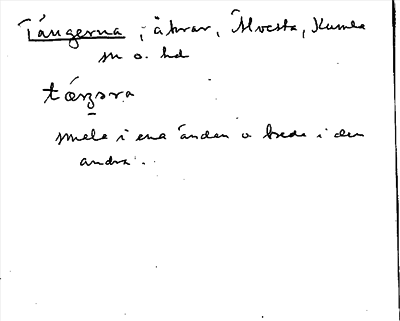 Tångerna, åkrar, Älvesta, Kumla
sn o. hd
smala i ena änden o breda i den
andra.